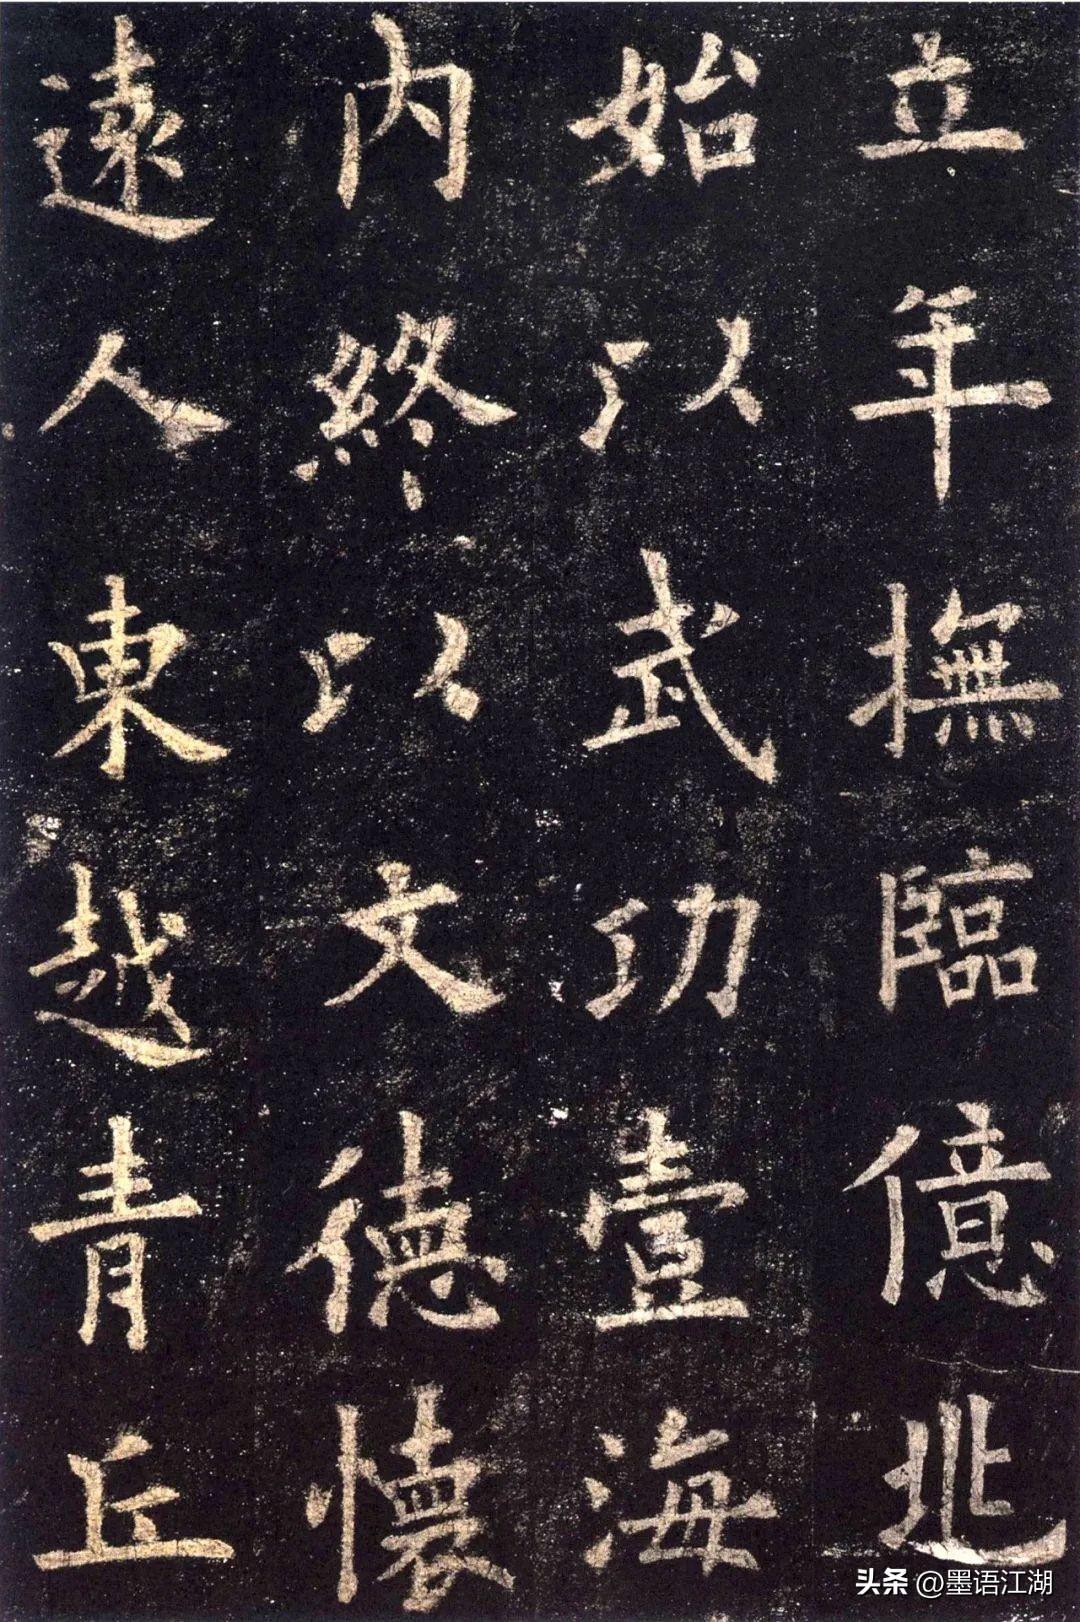 立年撫臨億兆
始以武功壹海
内終以文德懷
遠人東越青丘
头条 @墨语江湖